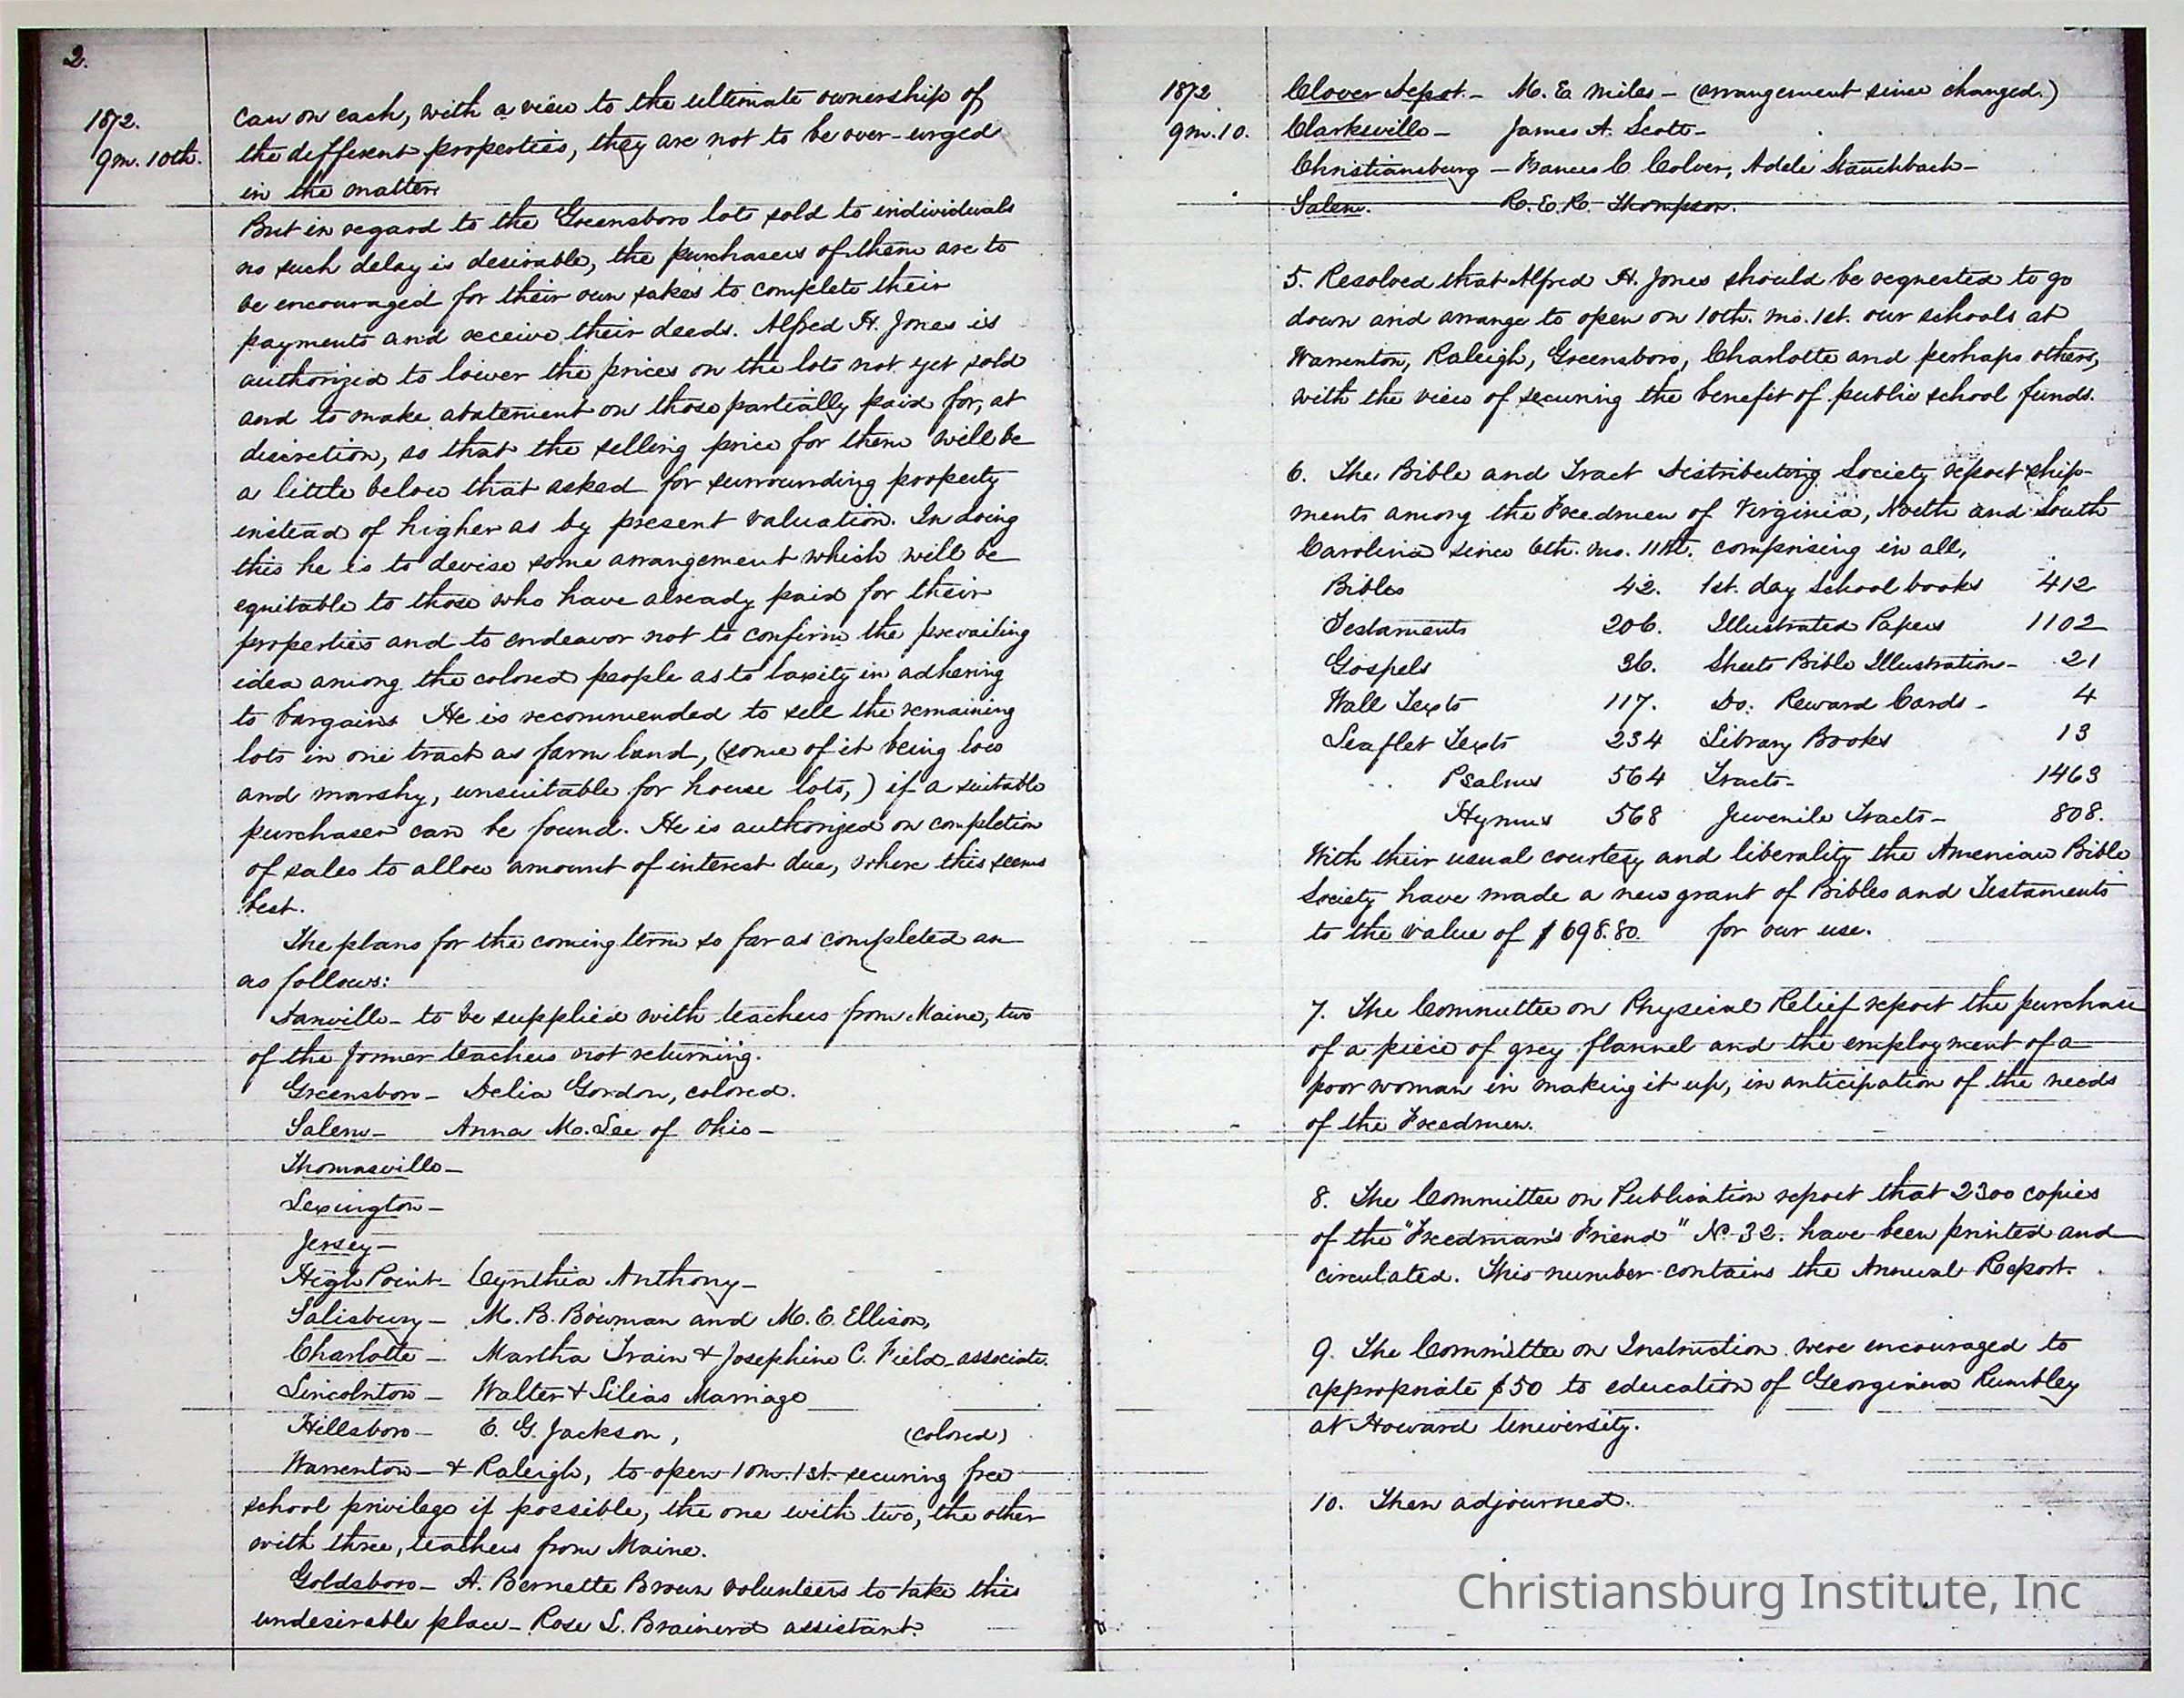 2.
1872.
9m. 10th.
can on each, with a view to the ultimate ownership of
the different properties, they are not to be over-urged
in the matter.
But in regard to the Greensboro lots sold to individuals
no such delay is desirable, the purchasers of them are to
be encouraged for their own sakes to complete their
payments and receive their deeds. Alfred H. Jones is
authorized to lower the prices on the lots not yet sold
and to make abatement on those partially paid for, at
discretion, so that the selling price for them will be
a little below that asked for surrounding property
instead of higher as by present valuation. In doing
this he is to devise some arrangement which will be
equitable to those who have already paid for their
properties and to endeavor not to confirm the prevailing
idea among the colored people as to laxity in adhering
to bargains. He is recommended to sell the remaining
lots in one tract as farm land, (some of it being low
and marshy, unsuitable for house lots,) if a suitable
purchaser can be found. He is authorized on completion
of sales to allow amount of interest due, where this seems
best.
The plans for the coming term so far as completed are
as follows:
Danville - to be supplied with teachers from Maine, two
of the former teachers not returning.
Greensboro - Delia Gordon, colored.
Salem - Anna M. Lee of Ohio -
Thomasville -
Lexington -
Jersey -
High Point - Cynthia Anthony -
Salisbury - M. B. Bowman and M. E. Ellison,
Charlotte - Martha Train & Josephine C. Field - associate.
Lincolnton - Walter & Silias Marriage
Hillsboro - E. G. Jackson, (colored)
Warrenton - & Raleigh, to open 10m. 1st. securing free
school privilege if possible, the one with two, the other
with three, teachers from Maine.
Goldsboro - A. Bernette Brown volunteers to take this
undesirable place - Rose L. Brainerd assistant.
1872
9m. 10.
Clover Depot. - M. E. Miles - (arrangement since changed.)
Clarksville - James A. Scott -
Christiansburg - Frances C Colver, Adele
Salem. R. E. R. Thompson.
5. Resolved that Alfred H. Jones should be requested to go
down and arrange to open on 10th. mo. 1st. our schools at
Warrenton, Raleigh, Greensboro, Charlotte and perhaps others,
with the view of securing the benefit of public school funds.
6. The Bible and Tract Distributing Society report ship-
ments among the Freedmen of Virginia, North and South
Carolina since 6th. mo. 11th. comprising in all,
Bibles 42. 1st. day School books 412
Testaments 206. Illustrated Papers 1102
Gospels 36. Sheets Bible Illustration - 21
Wall Texts 117. Do. Reward Cards - 4
Leaflet Texts 234 Library Books 13
" Psalms 564 Tracts - 1463
Hymns 568 Juvenile Tracts - 808.
With their usual courtesy and liberality the American Bible
Society have made a new grant of Bibles and Testaments
to the value of $698.80 for our use.
7. The Committee on Physical Relief report the purchase
of a piece of grey flannel and the employment of a
poor woman in making it up, in anticipation of the needs
of the Freedmen.
8. The Committee on Publication report that 2300 copies
of the "Freedman's Friend" No 32. have been printed and
circulated. This number contains the Annual Report.
9. The Committee on Instruction were encouraged to
appropriate $50 to education of Georgiana Rumbley
at Howard University.
10. Then adjourned.
Christiansburg Institute, Inc